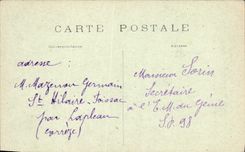 CARTE POSTALE
adresse :
M. Mazeyrou Germain
St Hilaire-Foissac
par Lapleau
(corrèze)
Monsieur Sorin
Secrétaire
à l'E. M. du Génie
S.P. 98